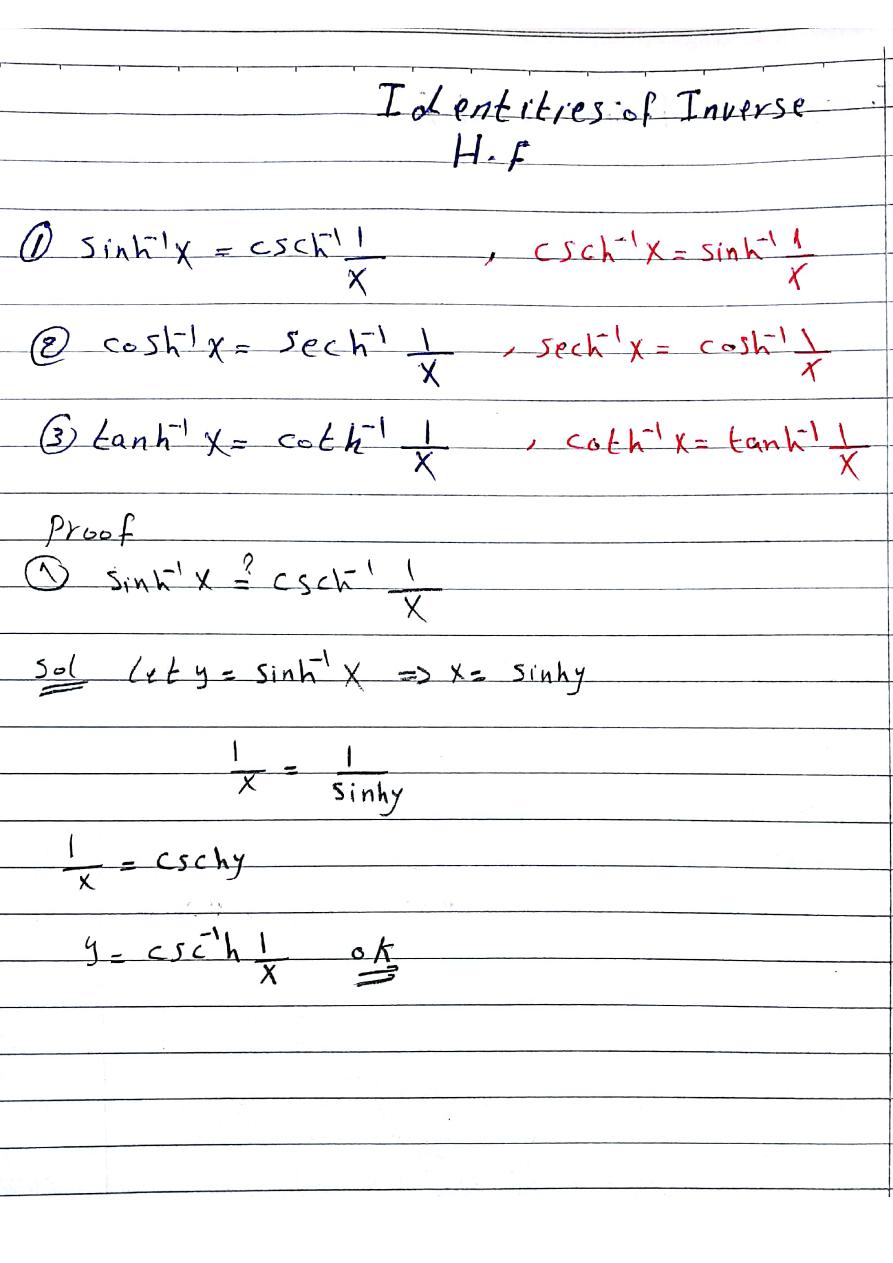 Identities of Inverse
H.F
① sinh⁻¹x = csch⁻¹ 1/x , csch⁻¹x = sinh⁻¹ 1/x
② cosh⁻¹x = sech⁻¹ 1/x , sech⁻¹x = cosh⁻¹ 1/x
③ tanh⁻¹x = coth⁻¹ 1/x , coth⁻¹x = tanh⁻¹ 1/x
Proof
① sinh⁻¹x ≟ csch⁻¹ 1/x
Sol let y = sinh⁻¹x ⇒ x = sinhy
1/x = 1/sinhy
1/x = cschy
y = csc⁻¹h 1/x ok